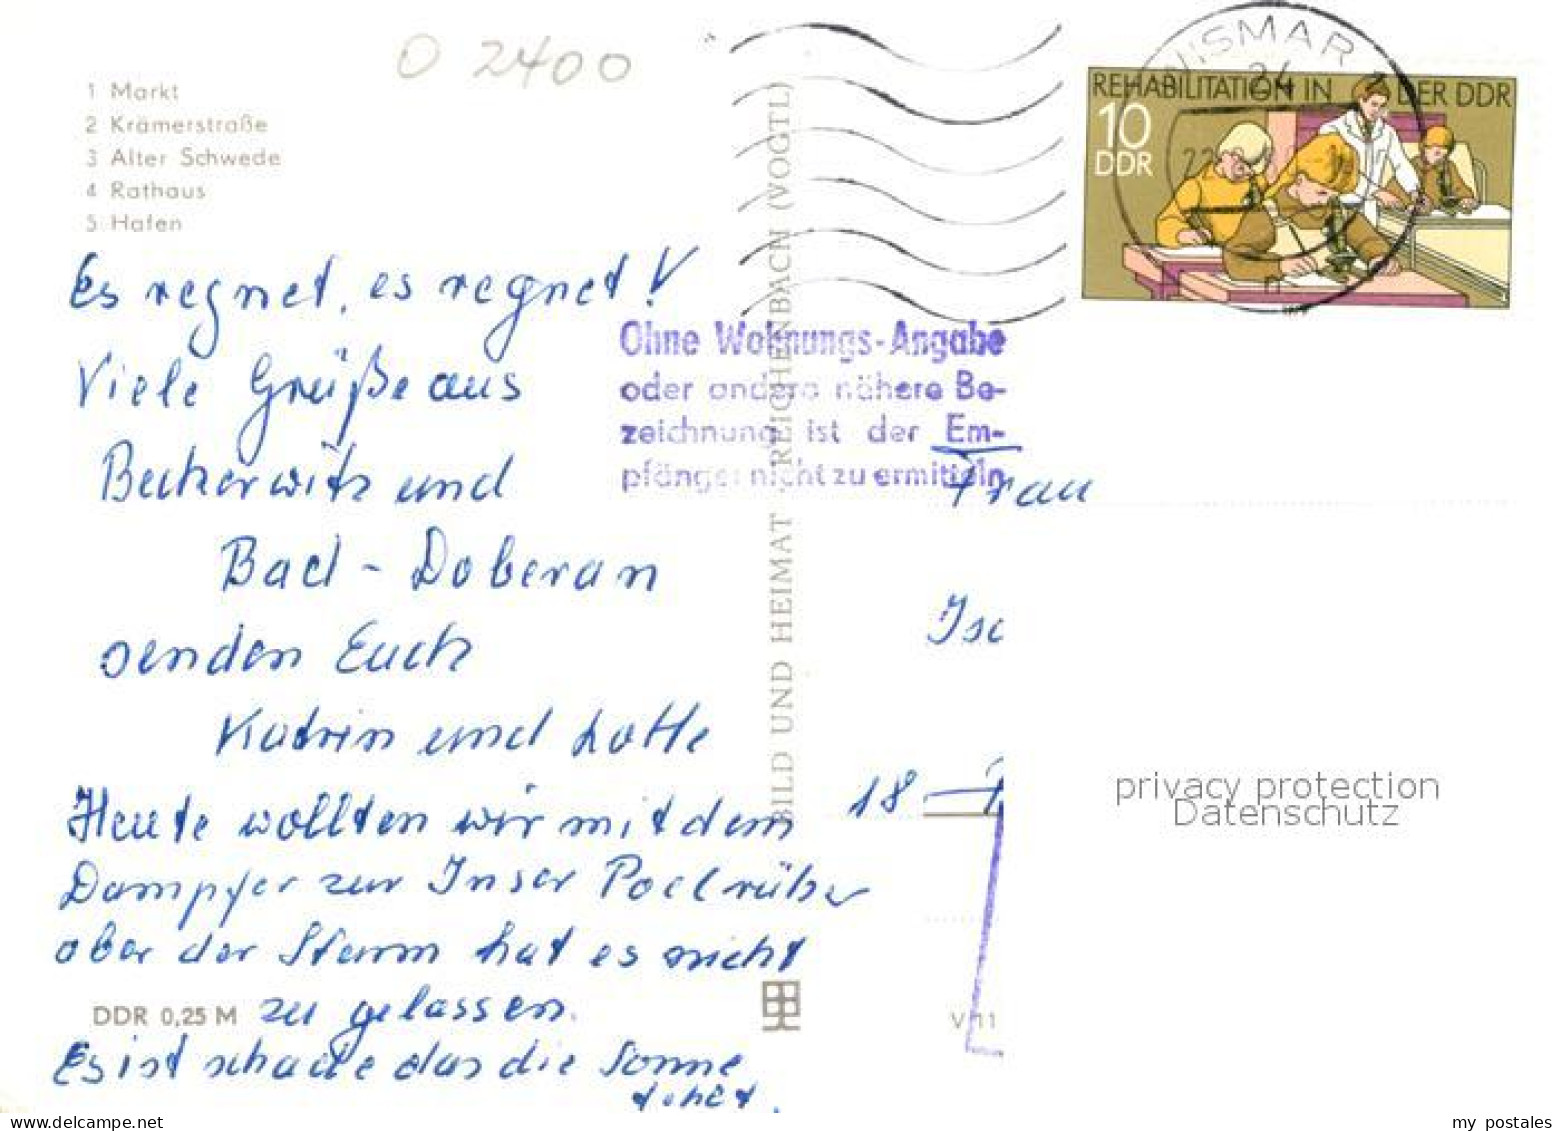 O 2400
1 Markt
2 Krämerstraße
3 Alter Schwede
4 Rathaus
5 Hafen
WISMAR
24
22
REHABILITATION IN DER DDR
10
DDR
Es regnet, es regnet!
Viele Grüße aus
Beckerwitz und
Bad-Doberan
senden Euch
Katrin und Lotte
Heute wollten wir mit dem
Dampfer zur Insel Poel rüber
aber der Sturm hat es nicht
zu gelassen.
Es ist schade das die Sonne
fehlt.
DDR 0,25 M
BILD UND HEIMAT REICHENBACH (VOGTL)
Ohne Wohnungs-Angabe
oder andere nähere Be-
zeichnung ist der Em-
pfänger nicht zu ermitteln
Frau
18
V 11
privacy protection
Datenschutz
my_postales
www.delcampe.net